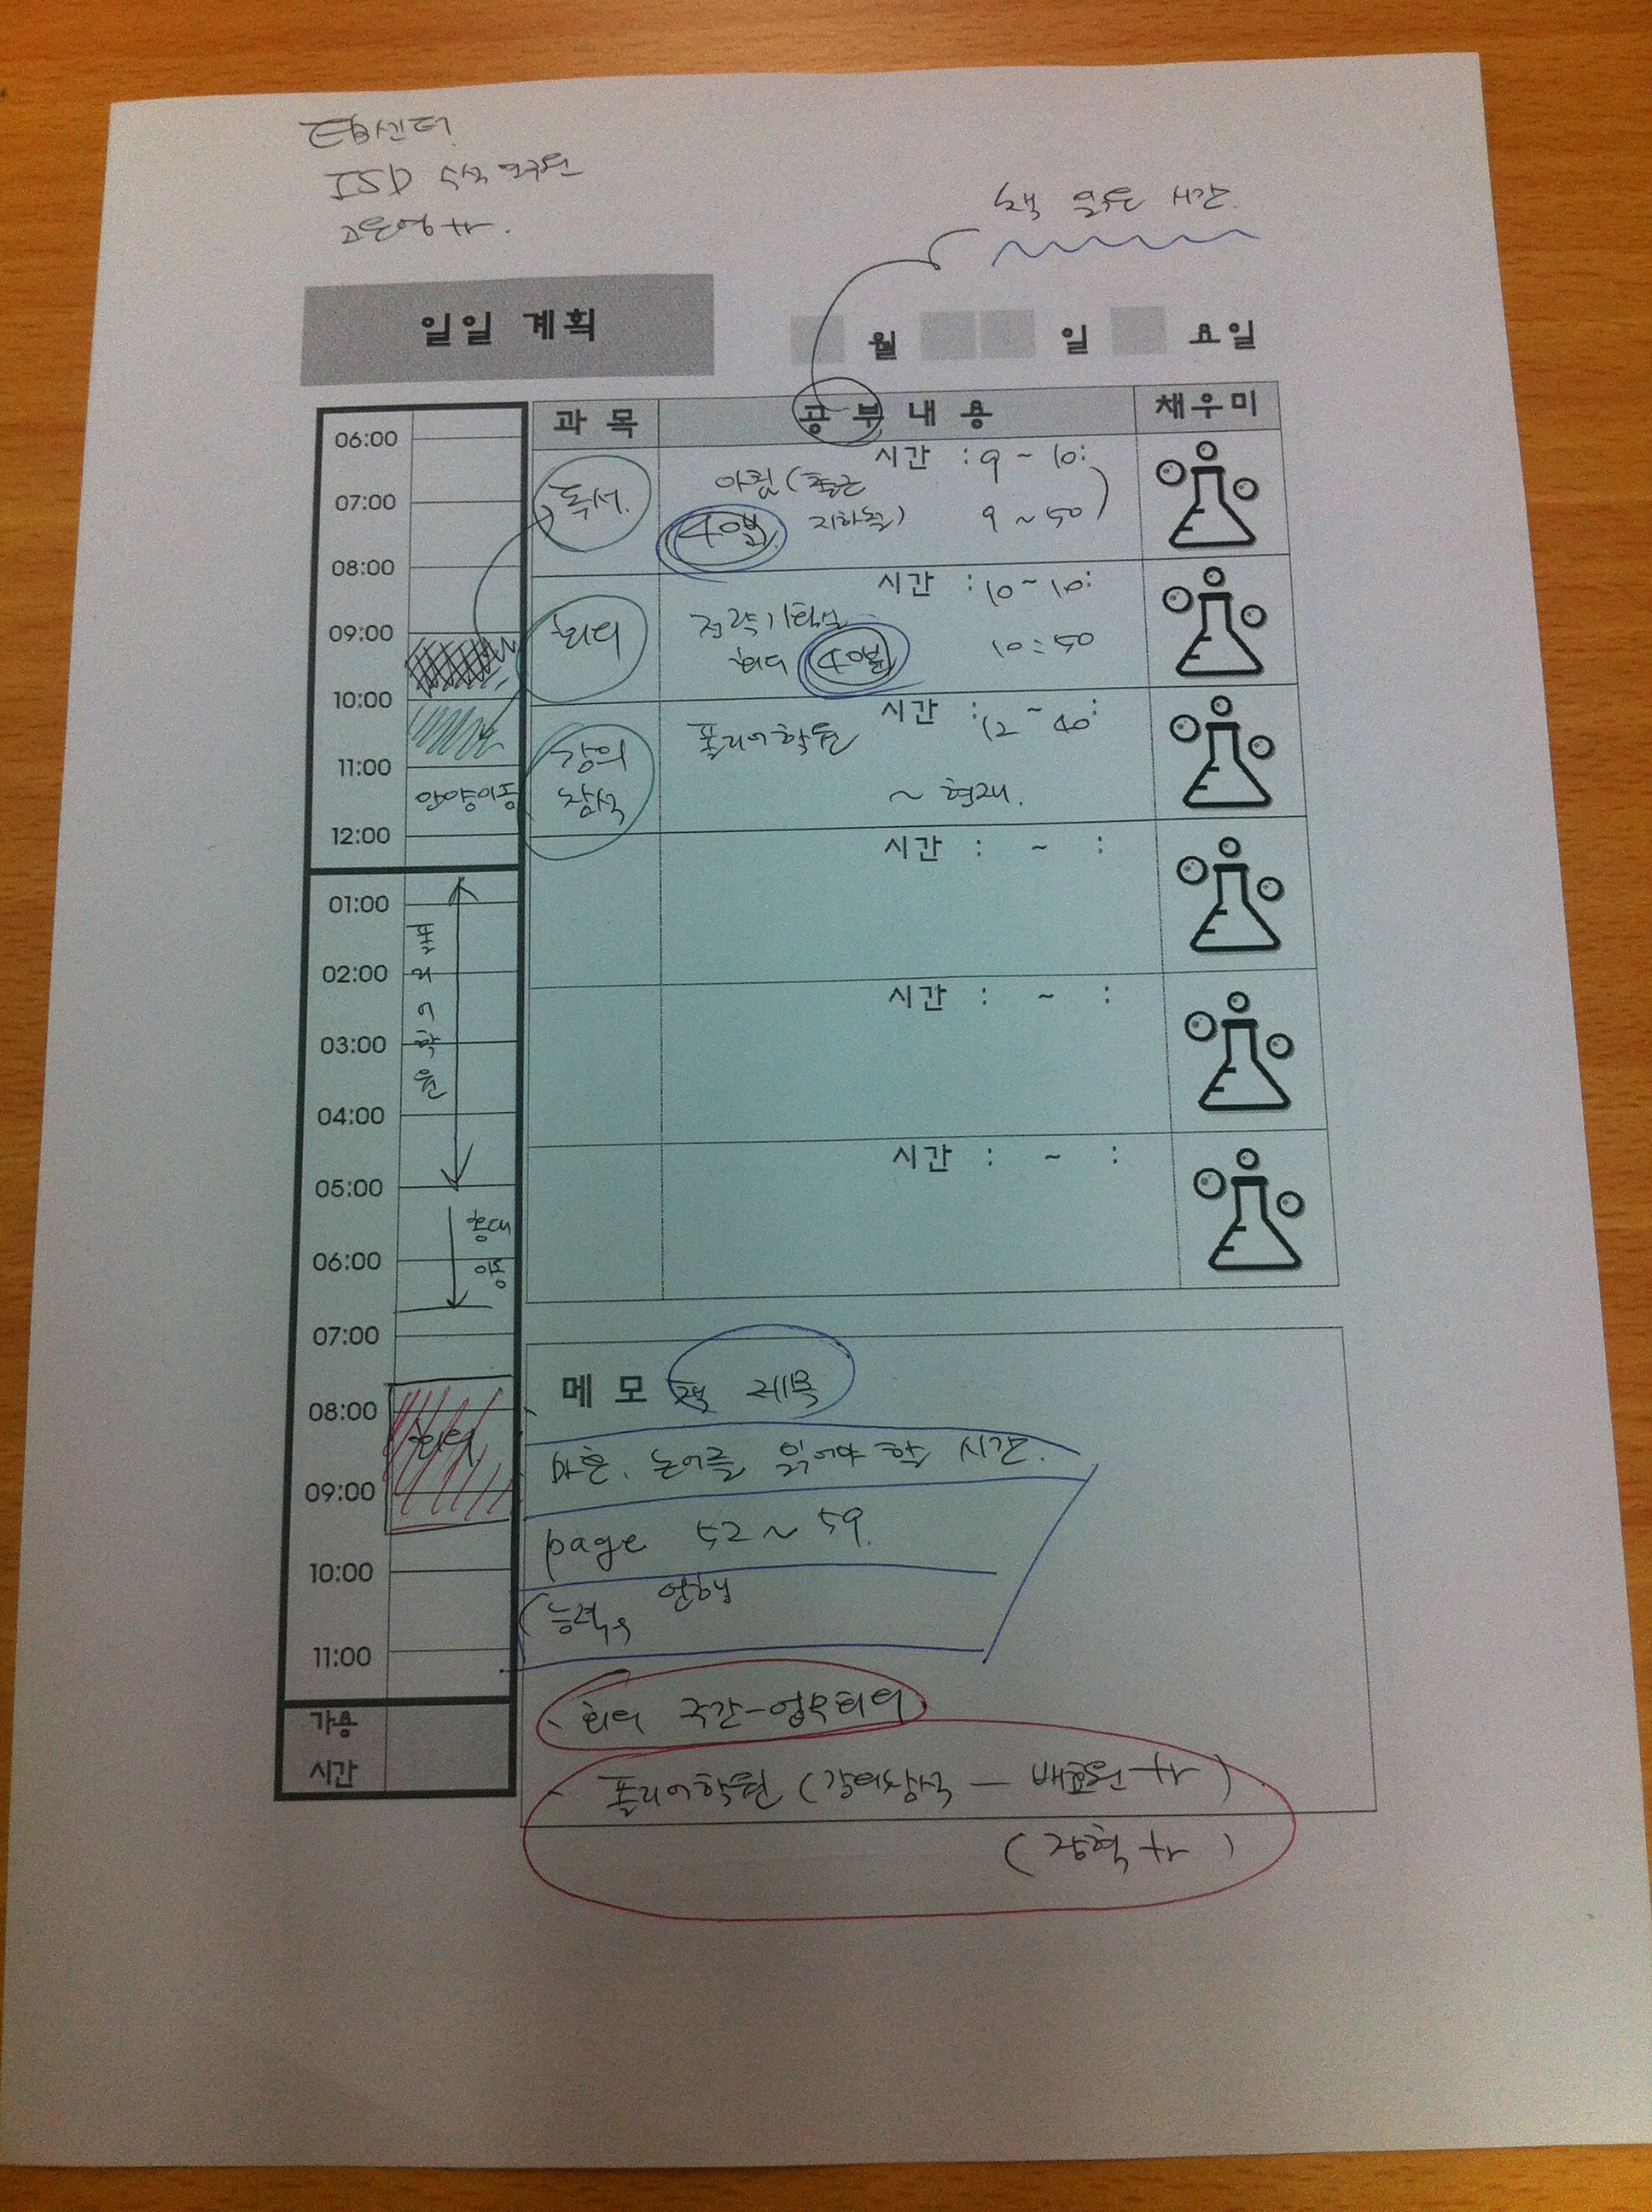 ISD 수석 연구원
고은영
책 읽은 시간.
일일 계획
월 일 요일
과목 공부내용 채우미
06:00
07:00
08:00
09:00
10:00
11:00
안양이동
12:00
01:00
02:00
03:00
04:00
05:00
이동
06:00
07:00
08:00
회의
09:00
10:00
11:00
가용
시간
독서.
시간 : 9 ~ 10:
아침 (출근
40분 지하철) 9 ~ 50)
회의
시간 : 10 ~ 10:
전략기획실
회의 40분 10:50
강의
참석
시간 : 12 ~ 40:
폴리어학원
~ 현재.
시간 : ~ :
시간 : ~ :
시간 : ~ :
메모 책 제목
마흔, 논어를 읽어야 할 시간.
page 52 ~ 59.
(능력,
회의 주간-업무회의
폴리어학원 (강의참석 —